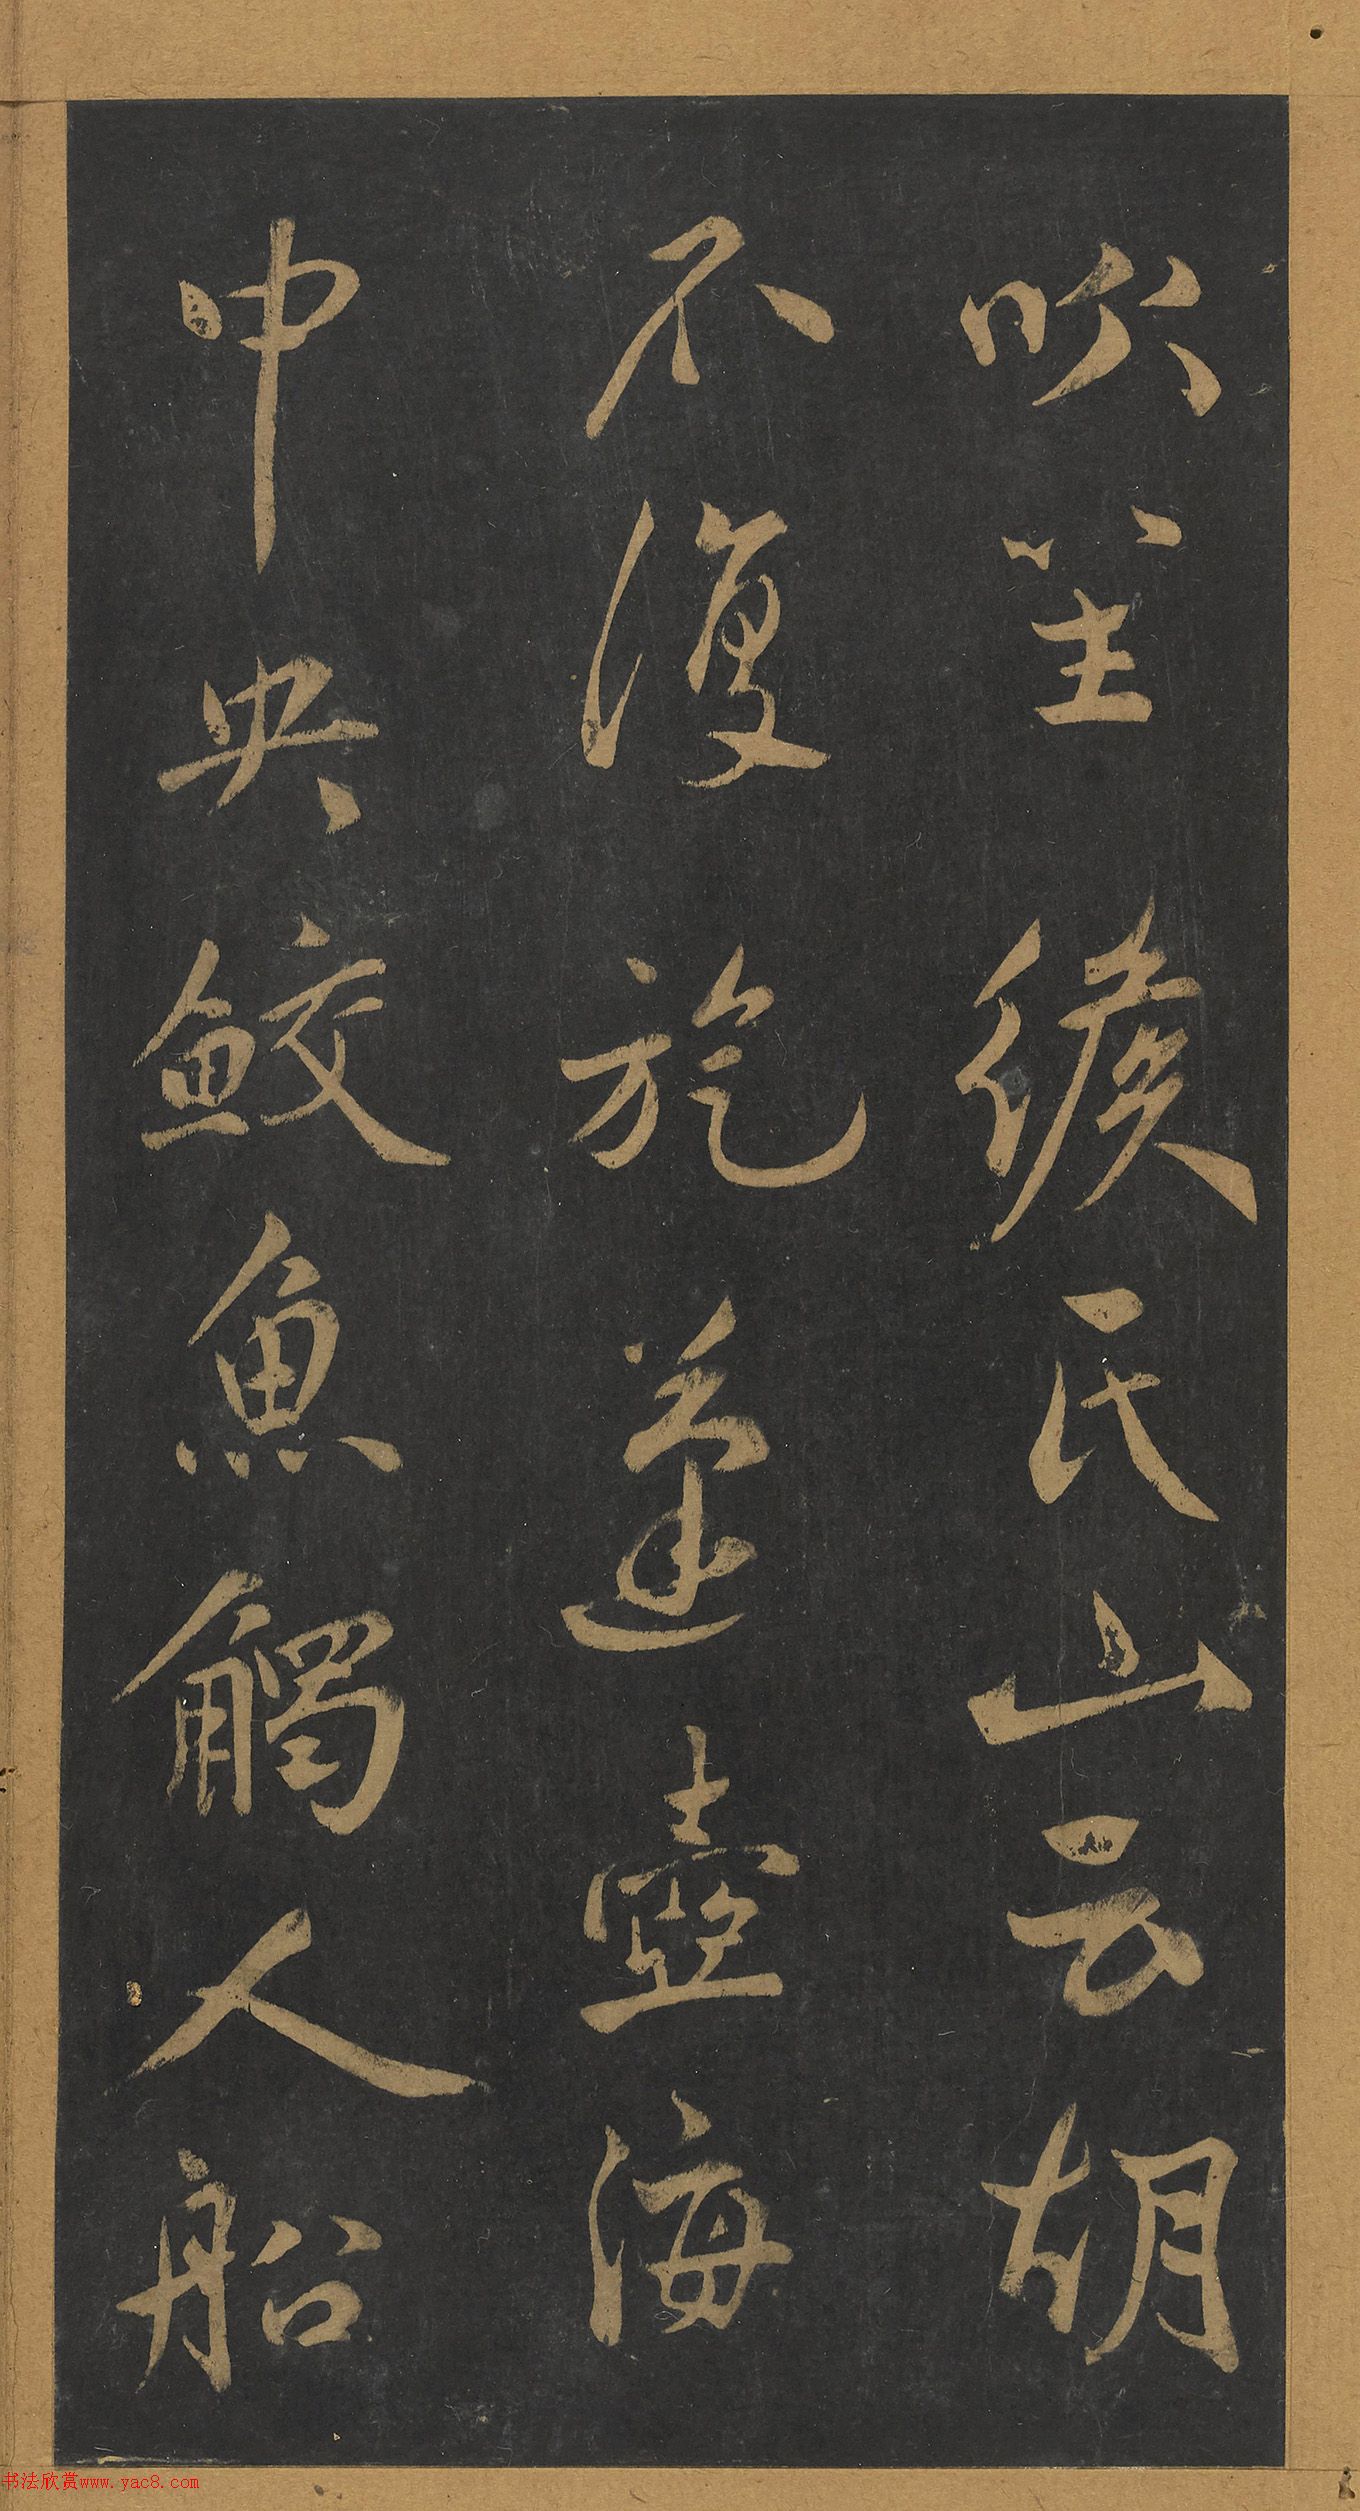 吹笙緱氏山云胡
不復旋蓬壺海
中央鮫魚觸人船
书法欣赏www.yac8.com